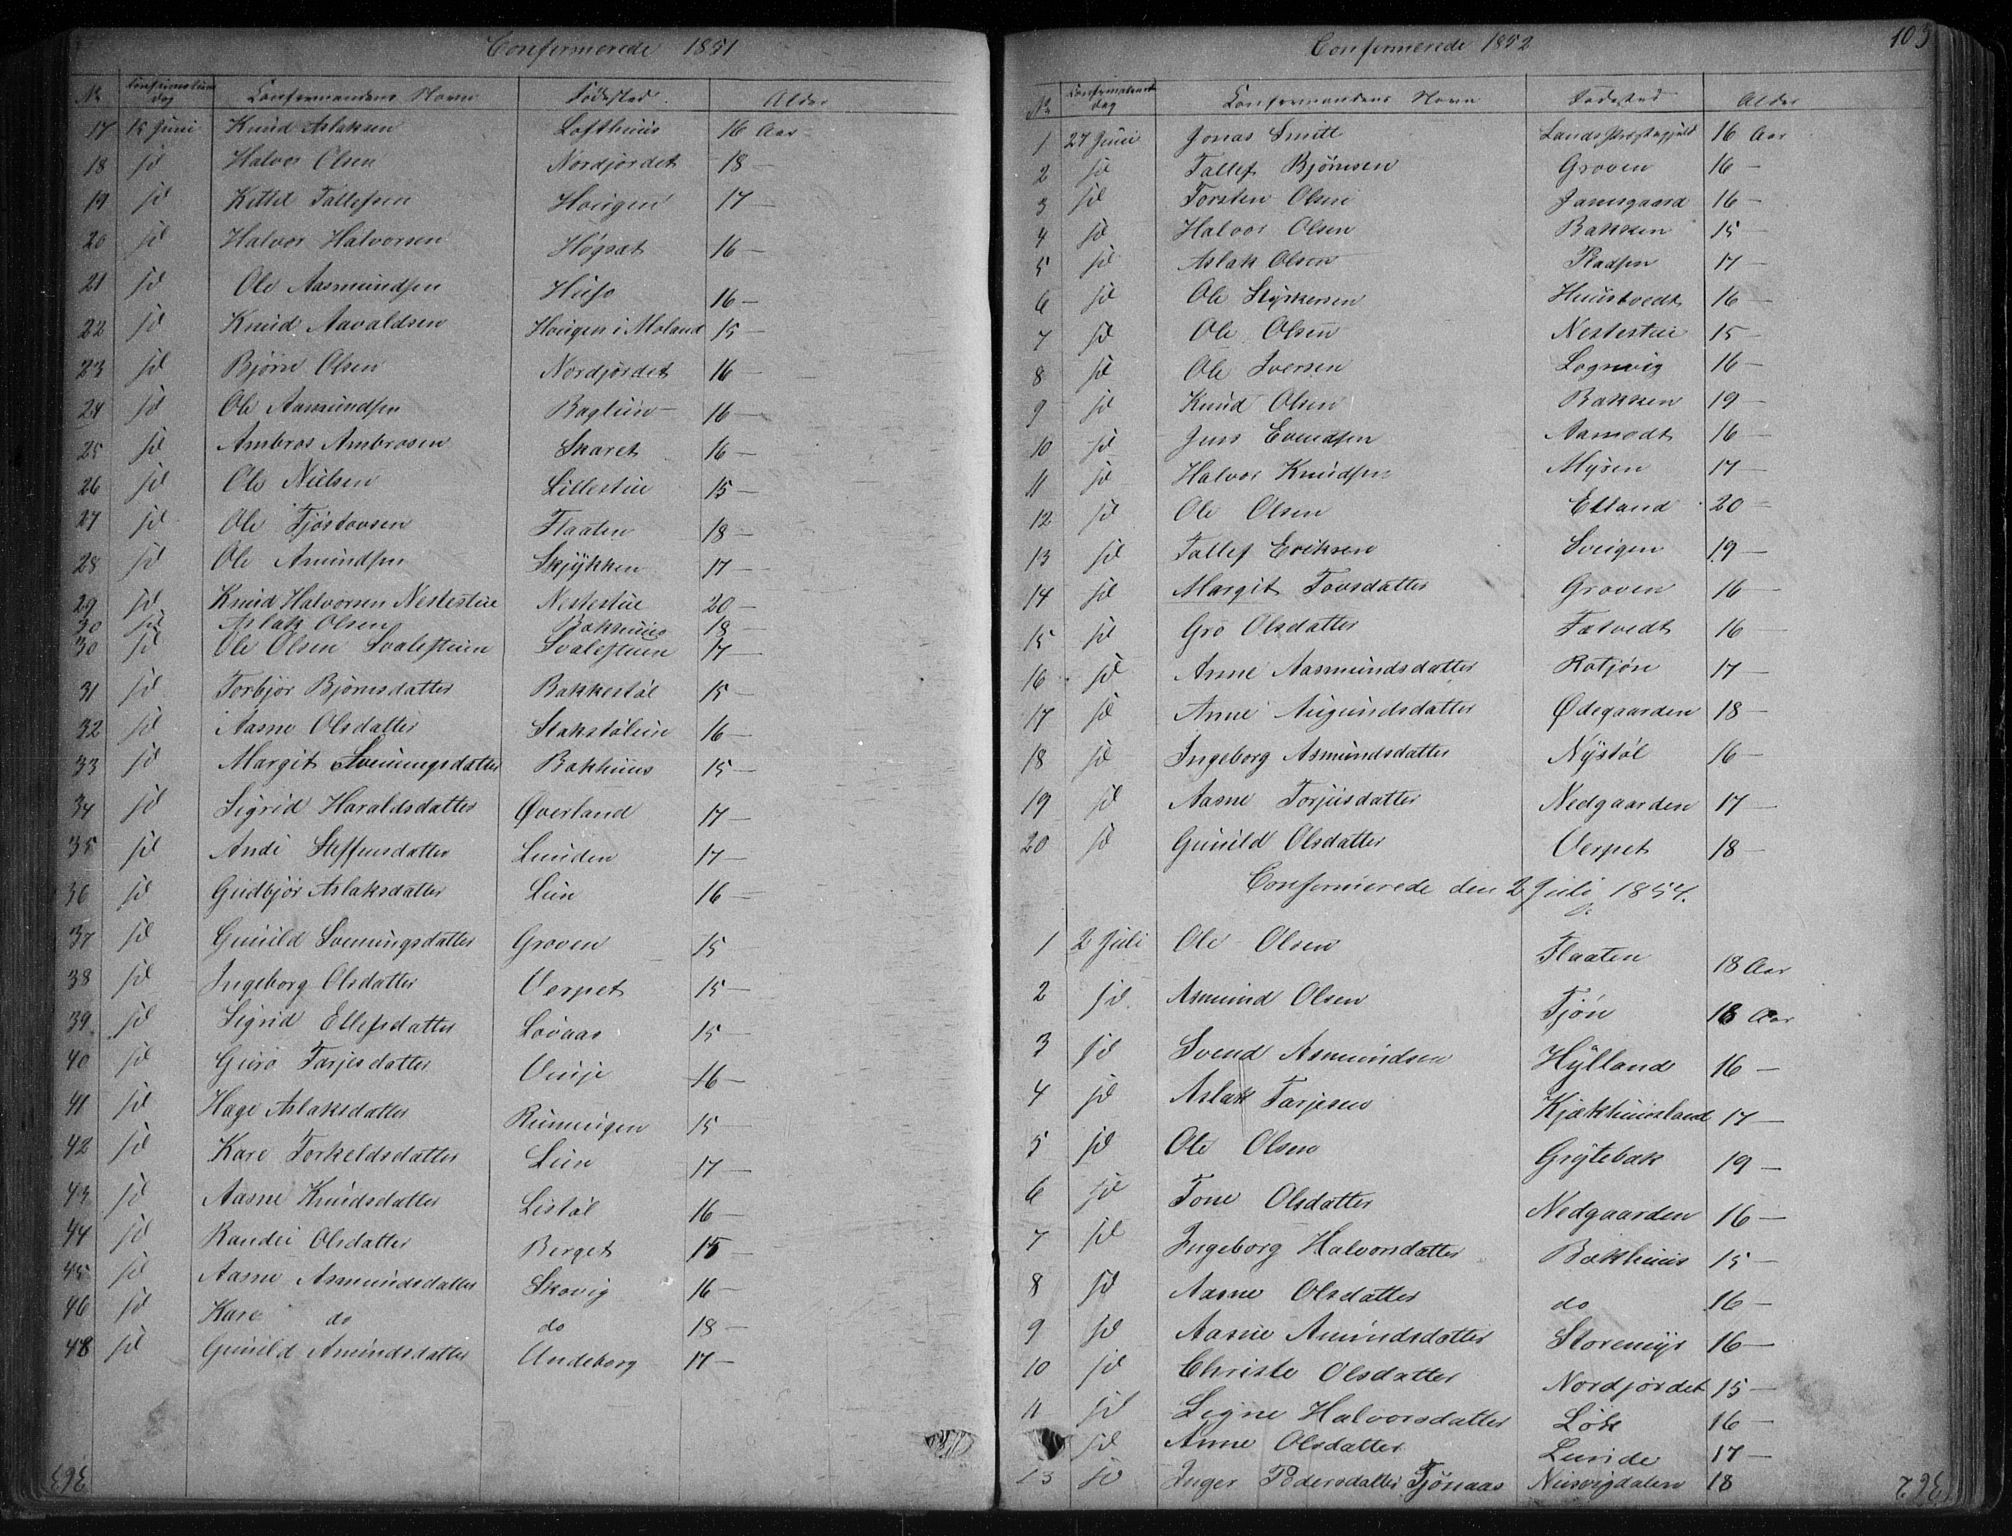 Confermerede 1851
No Confirmations dag Confermandens Navn Fødested Alder
17 15 Juni Knud Aslaksen Lofthuus 16 Aar
18 jd Halvor Olsen Nordjordet 18 —
19 jd Kittil Tallefsen Hougen 17 —
20 jd Halvor Halvorsen Høgsæt 16 —
21 jd Ole Aasmundsen Huso 16 —
22 jd Knud Aavaldsen Hougen i Moland 15 —
23 jd Bjørn Olsen Nordjordet 16 —
24 jd Ole Aasmundsen 16 —
25 jd Ambros Ambrosen Skaret 16 —
26 jd Ole Nielsen Lillestue 15 —
27 jd Ole Tjøstovsen Flaaten 18 —
28 jd Ole Amundsen Skjykken 17 —
29 jd Knud Halvorsen Nestestue Nestestue 20 —
30 jd Aslak Olsen Bakhuus 18 —
30 jd Ole Olsen Svalestuen Svalestuen 17 —
31 jd Torbjør Bjørnsdatter Bakkestøl 15 —
32 jd Aasne Olsdatter Stakstølen 16 —
33 jd Margit Sveinungsdatter Bakhuus 15 —
34 jd Sigrid Haraldsdatter Øverland 17 —
35 jd Andi Steffensdatter Lunden 17 —
36 jd Gudbjør Aslaksdatter Lien 16 —
37 jd Gunild Sveinungsdatter Groven 15 —
38 jd Ingeborg Olsdatter Verpet 15 —
39 jd Sigrid Ellefsdatter Lovaas 15 —
40 jd Guro Tarjesdatter Vinje 16 —
41 jd Hage Aslaksdatter Runningen 15 —
42 jd Kare Torkeldsdatter Lien 17 —
43 jd Aasne Knudsdatter Listøl 16 —
44 jd Randei Olsdatter Berget 15 —
45 jd Aasne Asmundsdatter Skovig 16 —
46 jd Kare do do 18 —
48 jd Gunild Amundsdatter Undeborg 17 —
Confermerede 1852
105
No Confermations dag Confermandens Navn Fødested Alder
1 27 Juni Jonas Smitt Lands Præstegjeld 16 Aar
2 jd Tallef Bjørnsen Groven 16 —
3 jd Torsten Olsen Jamsgaard 16 —
4 jd Halvor Olsen Bakken 15 —
5 jd Aslak Olsen Pladsen 17 —
6 jd Ole Styrkersen Huustvedt 16 —
7 jd Ole Olsen Nestestue 15 —
8 jd Ole Iversen Lognvig 16 —
9 jd Knud Olsen Bakken 19 —
10 jd Jens Evendsen Aamodt 16 —
11 jd Halvor Knudsen Mysen 17 —
12 jd Ole Olsen Etland 20 —
13 jd Tallef Eriksen Sveigen 19 —
14 jd Margit Tovsdatter Groven 16 —
15 jd Gro Olsdatter Tatvedt 16 —
16 jd Anne Aasmundsdatter Rotjøn 17 —
17 jd Anne Augundsdatter Ødegaarden 18 —
18 jd Ingeborg Asmundsdatter Nystøl 16 —
19 jd Aasne Torjusdatter Nedgaarden 17 —
20 jd Gunild Olsdatter Verpet 18 —
Confermerede den 2 Juli 1854.
1 2 Juli Ole Olsen Flaaten 18 Aar
2 jd Asmund Olsen Tjøn 18 Aar
3 jd Svend Asmundsen Hylland 16 —
4 jd Aslak Tarjesen Kjækhuusland 17 —
5 jd Ole Olsen Grytebæk 19 —
6 jd Tone Olsdatter Nedgaarden 16 —
7 jd Ingeborg Halvorsdatter Bækhuus 15 —
8 jd Aasne Olsdatter do 16 —
9 jd Aasne Amundsdatter Storemyr 16 —
10 jd Christi Olsdatter Nordjordet 15 —
11 jd Signe Halvorsdatter 16 —
jd Anne Olsdatter Lunde 17 —
13 jd Inger Pedersdatter Tjønaas 18